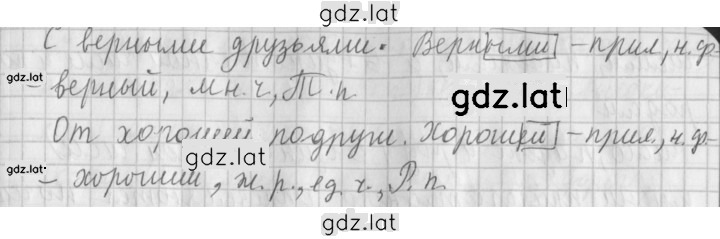 gdz.lat
С верными друзьями. Верными - прил, н.ф
gdz.lat
- верный, мн.ч, Т.п
gdz.lat
От хорошей подруги. Хорошей - прил, н.ф-
gdz.lat
gdz.lat
- хороший, ж.р., ед.ч., Р.п.
gdz.lat